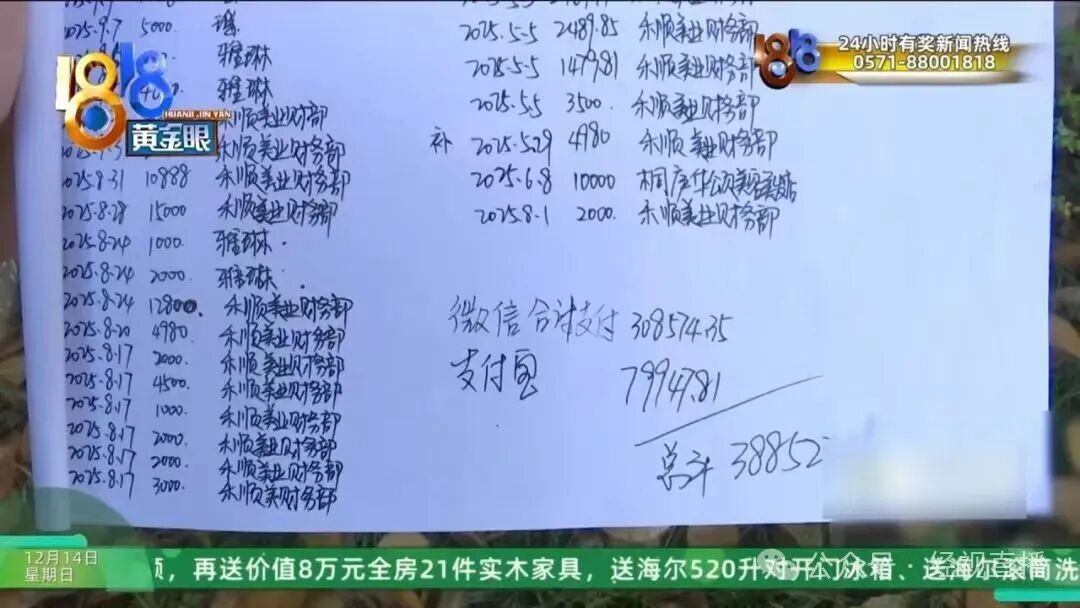 2025.9.7 5000. 瑶
雅琳
雅琳
禾顺美业财务部
禾顺美业财务部
2025.8.31 10888 禾顺美业财务部
2025.8.28 15000 禾顺美业财务部
2025.8.24 1000. 雅琳.
2025.8.24 2000. 雅琳.
2025.8.24 12800. 禾顺美业财务部
2025.8.20 4980 禾顺美业财务部
2025.8.17 2000 禾顺美业财务部
2025.8.17 4500. 禾顺美业财务部
2025.8.17 1000 禾顺美业财务部
2025.8.17 2000. 禾顺美业财务部
2025.8.17 2000. 禾顺美业财务部
2025.8.17 3000. 禾顺美财务部
2025.5.5 2489.85 禾顺美业财务部
2025.5.5 1479.81 禾顺美业财务部
2025.5.5 3500. 禾顺美业财务部
补 2025.5.29 4980 禾顺美业财务部
2025.6.8 10000
2025.8.1 2000. 禾顺美业财务部
微信合计支付 308574.35
支付宝 79947.81
总计 38852
1818
HUANG JIN YAN
黄金眼
1818
24小时有奖新闻热线
0571-88001818
12月14日
星期日
再送价值8万元全房21件实木家具，送海尔520升对开门冰箱、送海尔滚筒洗
公众号 · 经视直播